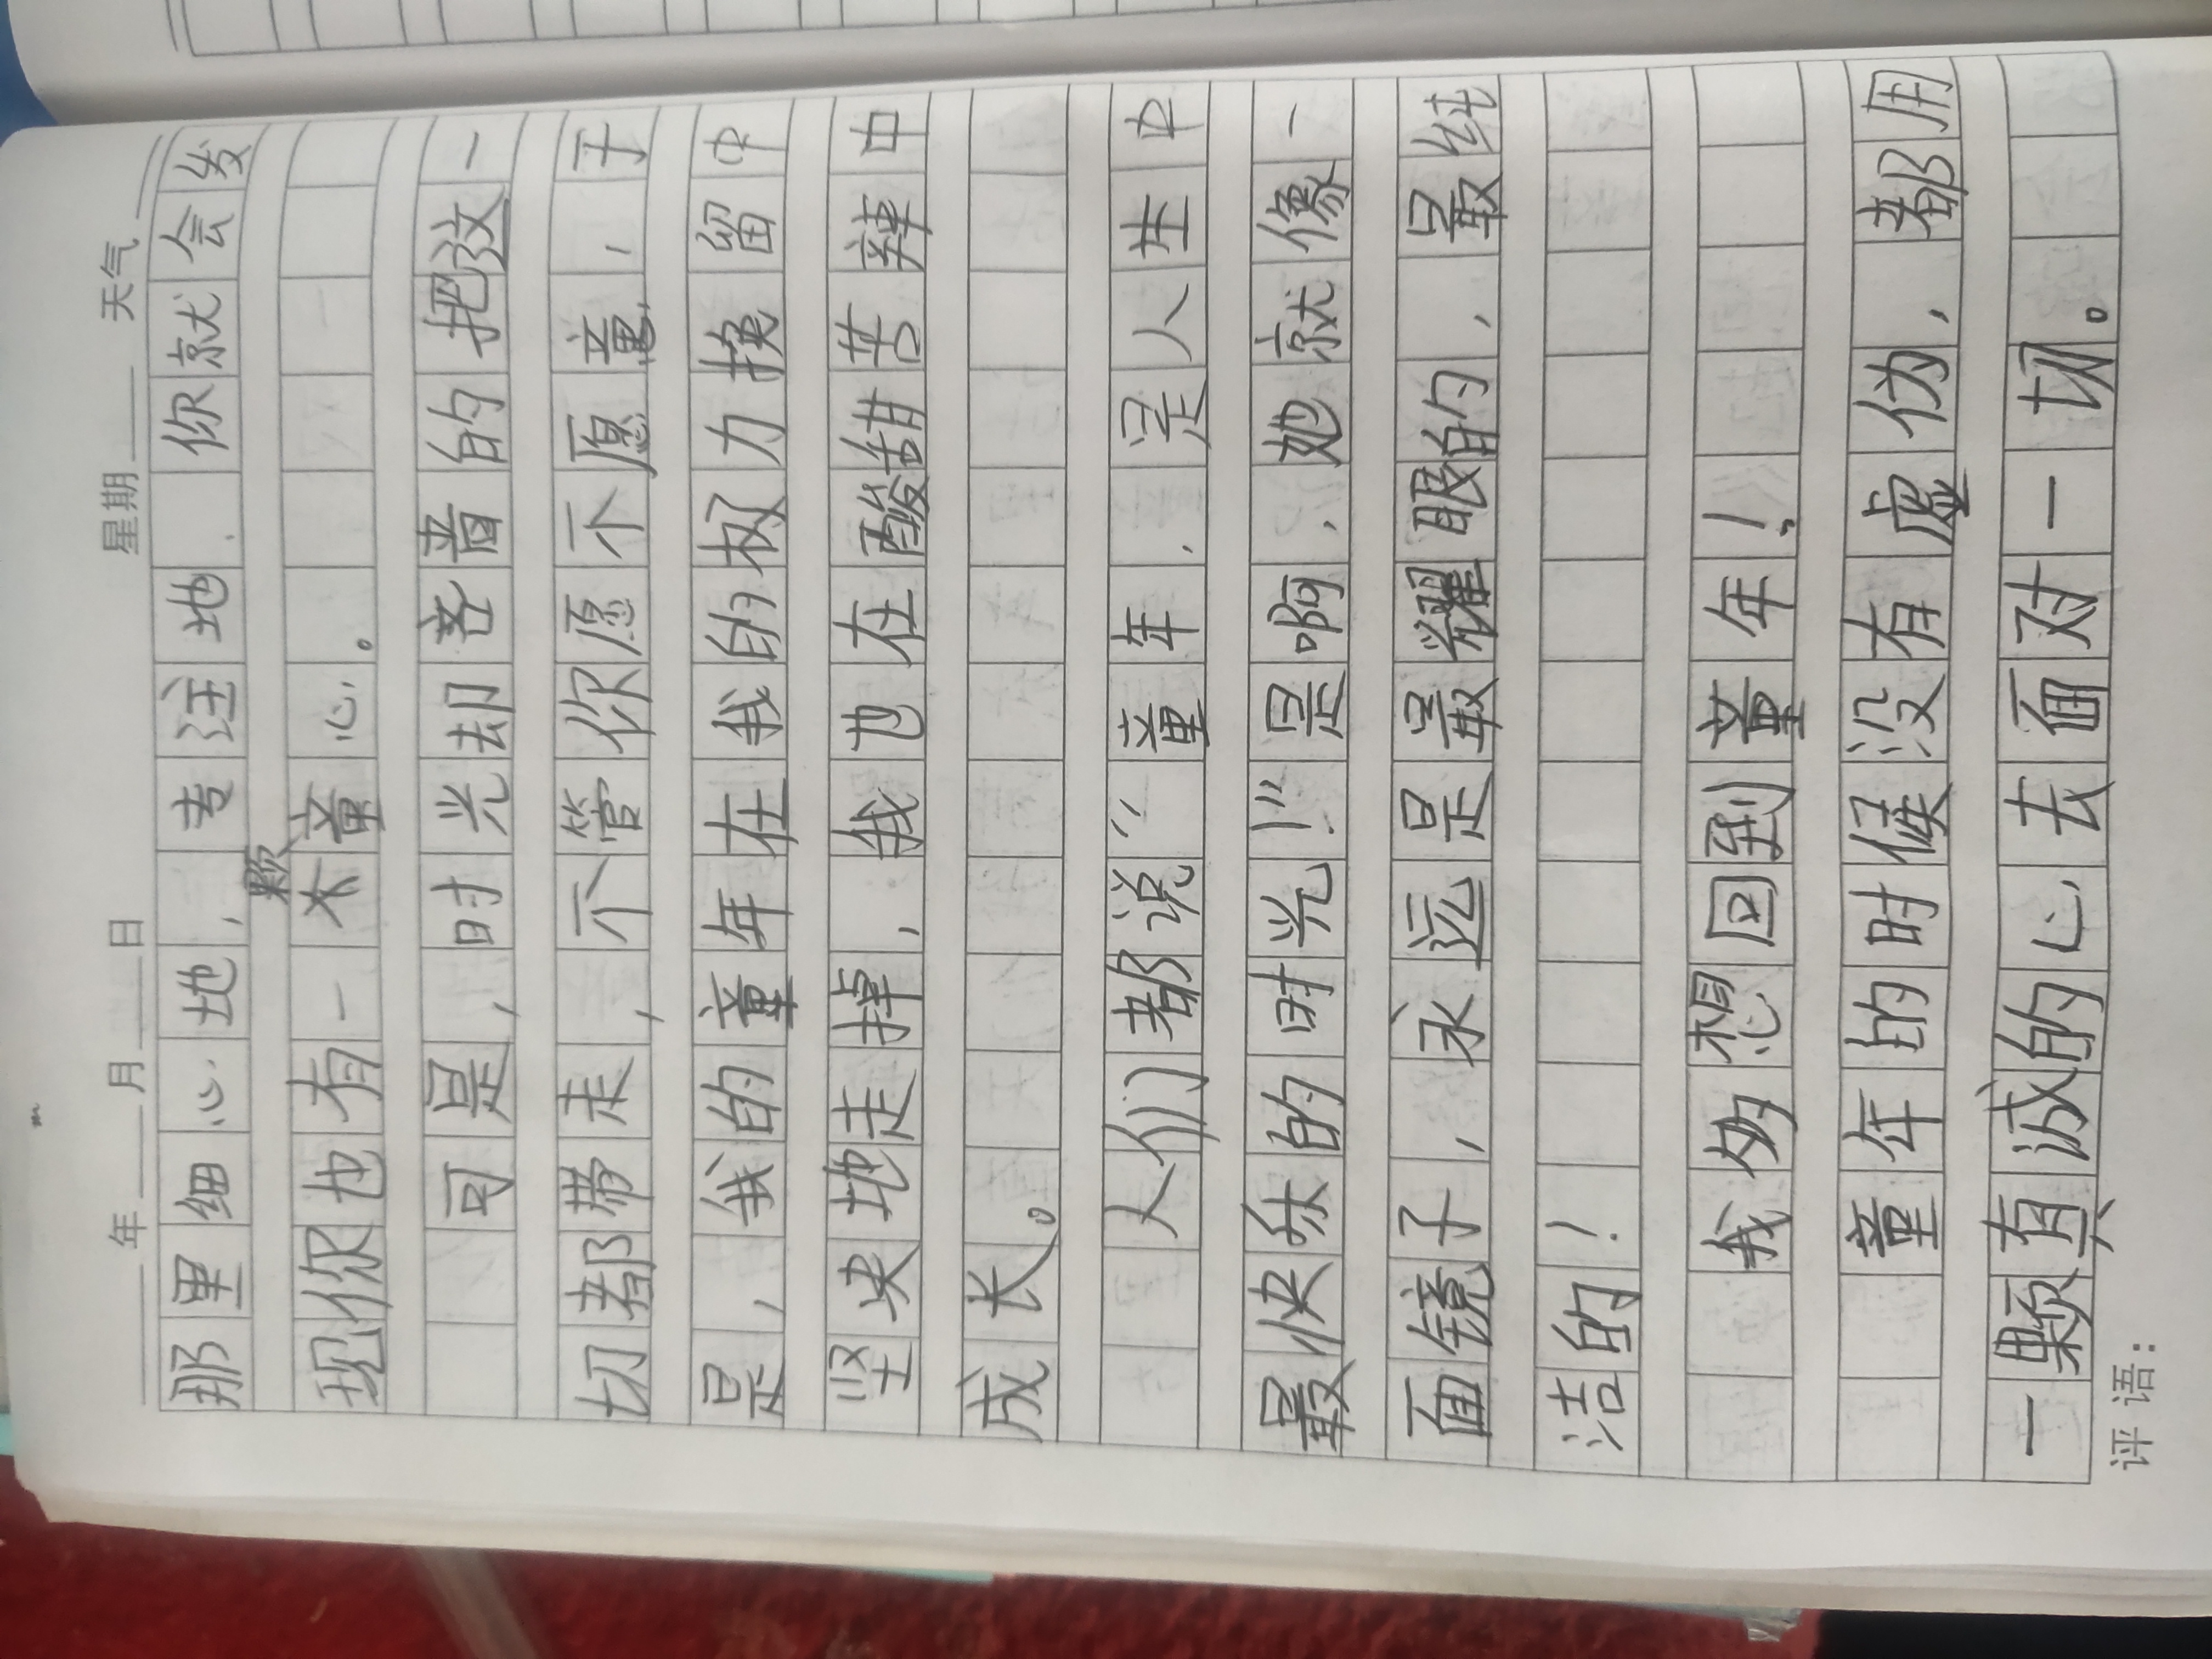 年 月 日 星期 天气
那里细心地，专注地，你就会发
颗
现你也有一木童心。
可是，时光却吝啬的把这一
切都带走，不管你愿不愿意，于
是，我的童年在我的极力挽留中
坚决地走掉，我也在酸甜苦辣中
成长。
人们都说“童年，是人生中
最快乐的时光！”是啊，她就像一
面镜子，永远是最耀眼的，最纯
洁的！
我多想回到童年！
童年的时候没有虚伪，都用
一颗真诚的心去面对一切。
评语：